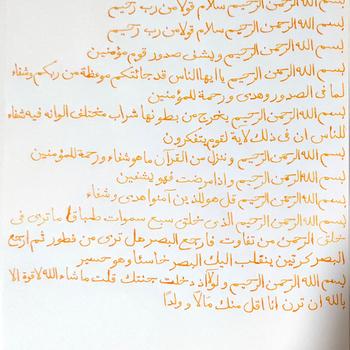 بسم الله الرحمن الرحيم سلام قولا من رب رحيم
بسم الله الرحمن الرحيم سلام قولا من رب رحيم
بسم الله الرحمن الرحيم ويشف صدور قوم مؤمنين
بسم الله الرحمن الرحيم يا ايها الناس قد جائتكم موعظة من ربكم وشفاء
لما في الصدور وهدى و رحمة للمؤمنين
بسم الله الرحمن الرحيم يخرج من بطونها شراب مختلف الوانه فيه شفاء
للناس ان في ذلك لاية لقوم يتفكرون
بسم الله الرحمن الرحيم و ننزل من القرآن ما هو شفاء ورحمة للمؤمنين
بسم الله الرحمن الرحيم واذا مرضت فهو يشفين
بسم الله الرحمن الرحيم قل هو للذين آمنوا هدى و شفاء
بسم الله الرحمن الرحيم الذى خلق سبع سموات طباقا ما ترى في
خلق الرحمن من تفاوت فارجع البصر هل ترى من فطور ثم ارجع
البصر كرتين ينقلب اليك البصر خاسئا وهو حسير
بسم الله الرحمن الرحيم و لولا اذ دخلت جنتك قلت ما شاء الله لا قوة الا
بالله ان ترن انا اقل منك مالا و ولدا